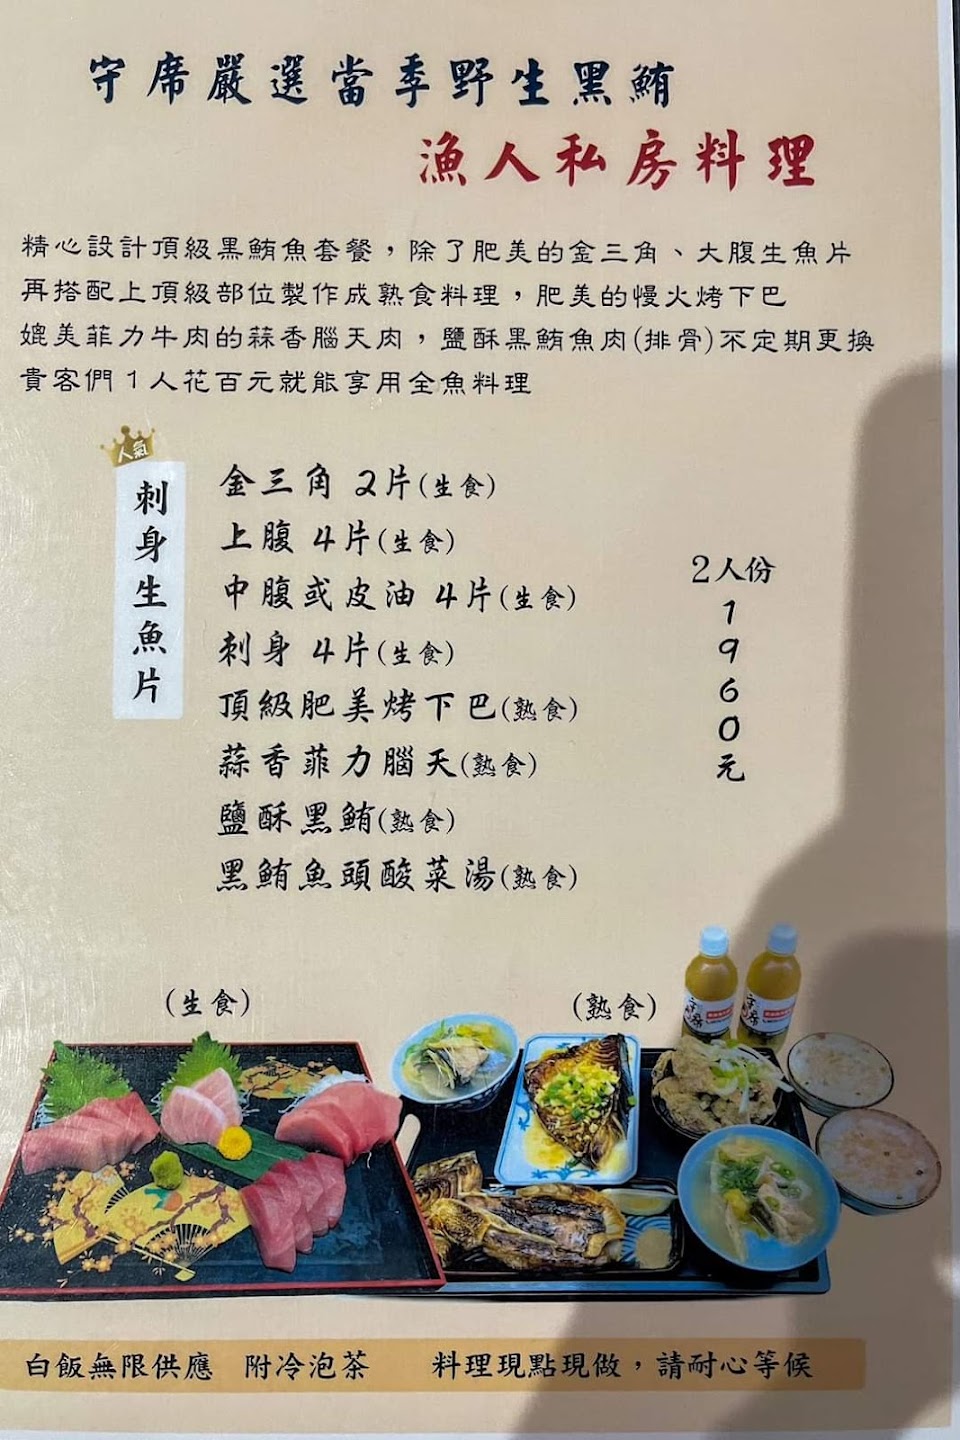 守席嚴選當季野生黑鮪
漁人私房料理
精心設計頂級黑鮪魚套餐，除了肥美的金三角、大腹生魚片
再搭配上頂級部位製作成熟食料理，肥美的慢火烤下巴
媲美菲力牛肉的蒜香腦天肉，鹽酥黑鮪魚肉(排骨)不定期更換
貴客們1人花百元就能享用全魚料理
人氣
刺身生魚片
金三角 2片(生食)
上腹 4片(生食)
中腹或皮油 4片(生食)
刺身 4片(生食)
頂級肥美烤下巴(熟食)
蒜香菲力腦天(熟食)
鹽酥黑鮪(熟食)
黑鮪魚頭酸菜湯(熟食)
2人份
1960元
(生食)
(熟食)
守席
守席
白飯無限供應 附冷泡茶 料理現點現做，請耐心等候